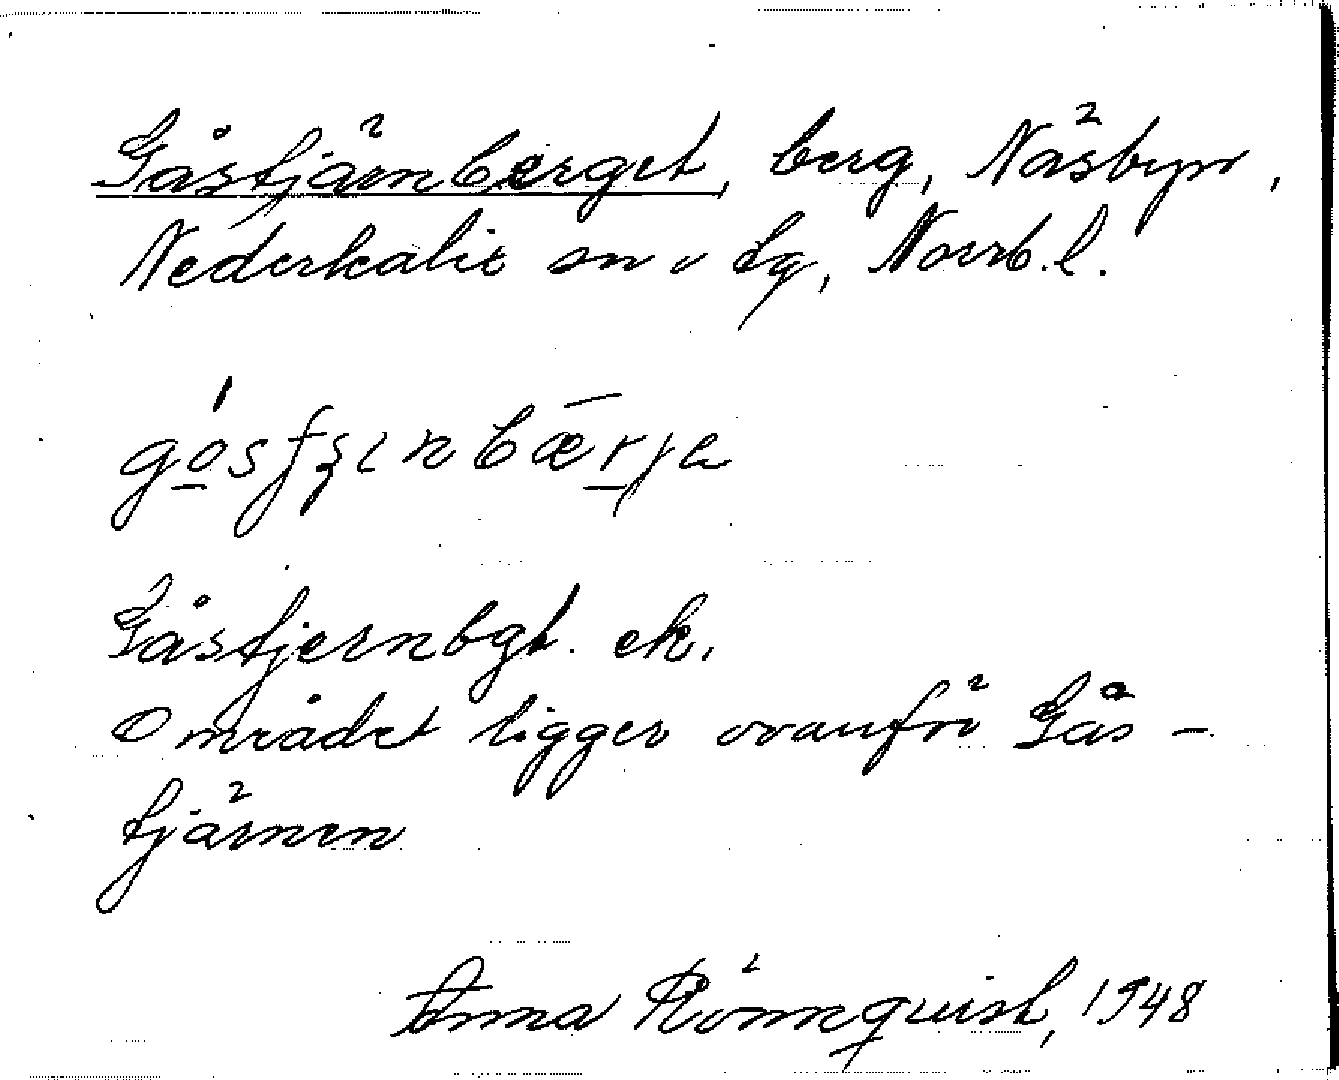 Gåstjärnberget, berg, Näsbyn,
Nederkalix sn o tg, Norrb. l.
Gåstjernbgt. ek.
Området ligger ovanför Gås-
tjärnen
Anna Rönnquist, 1948